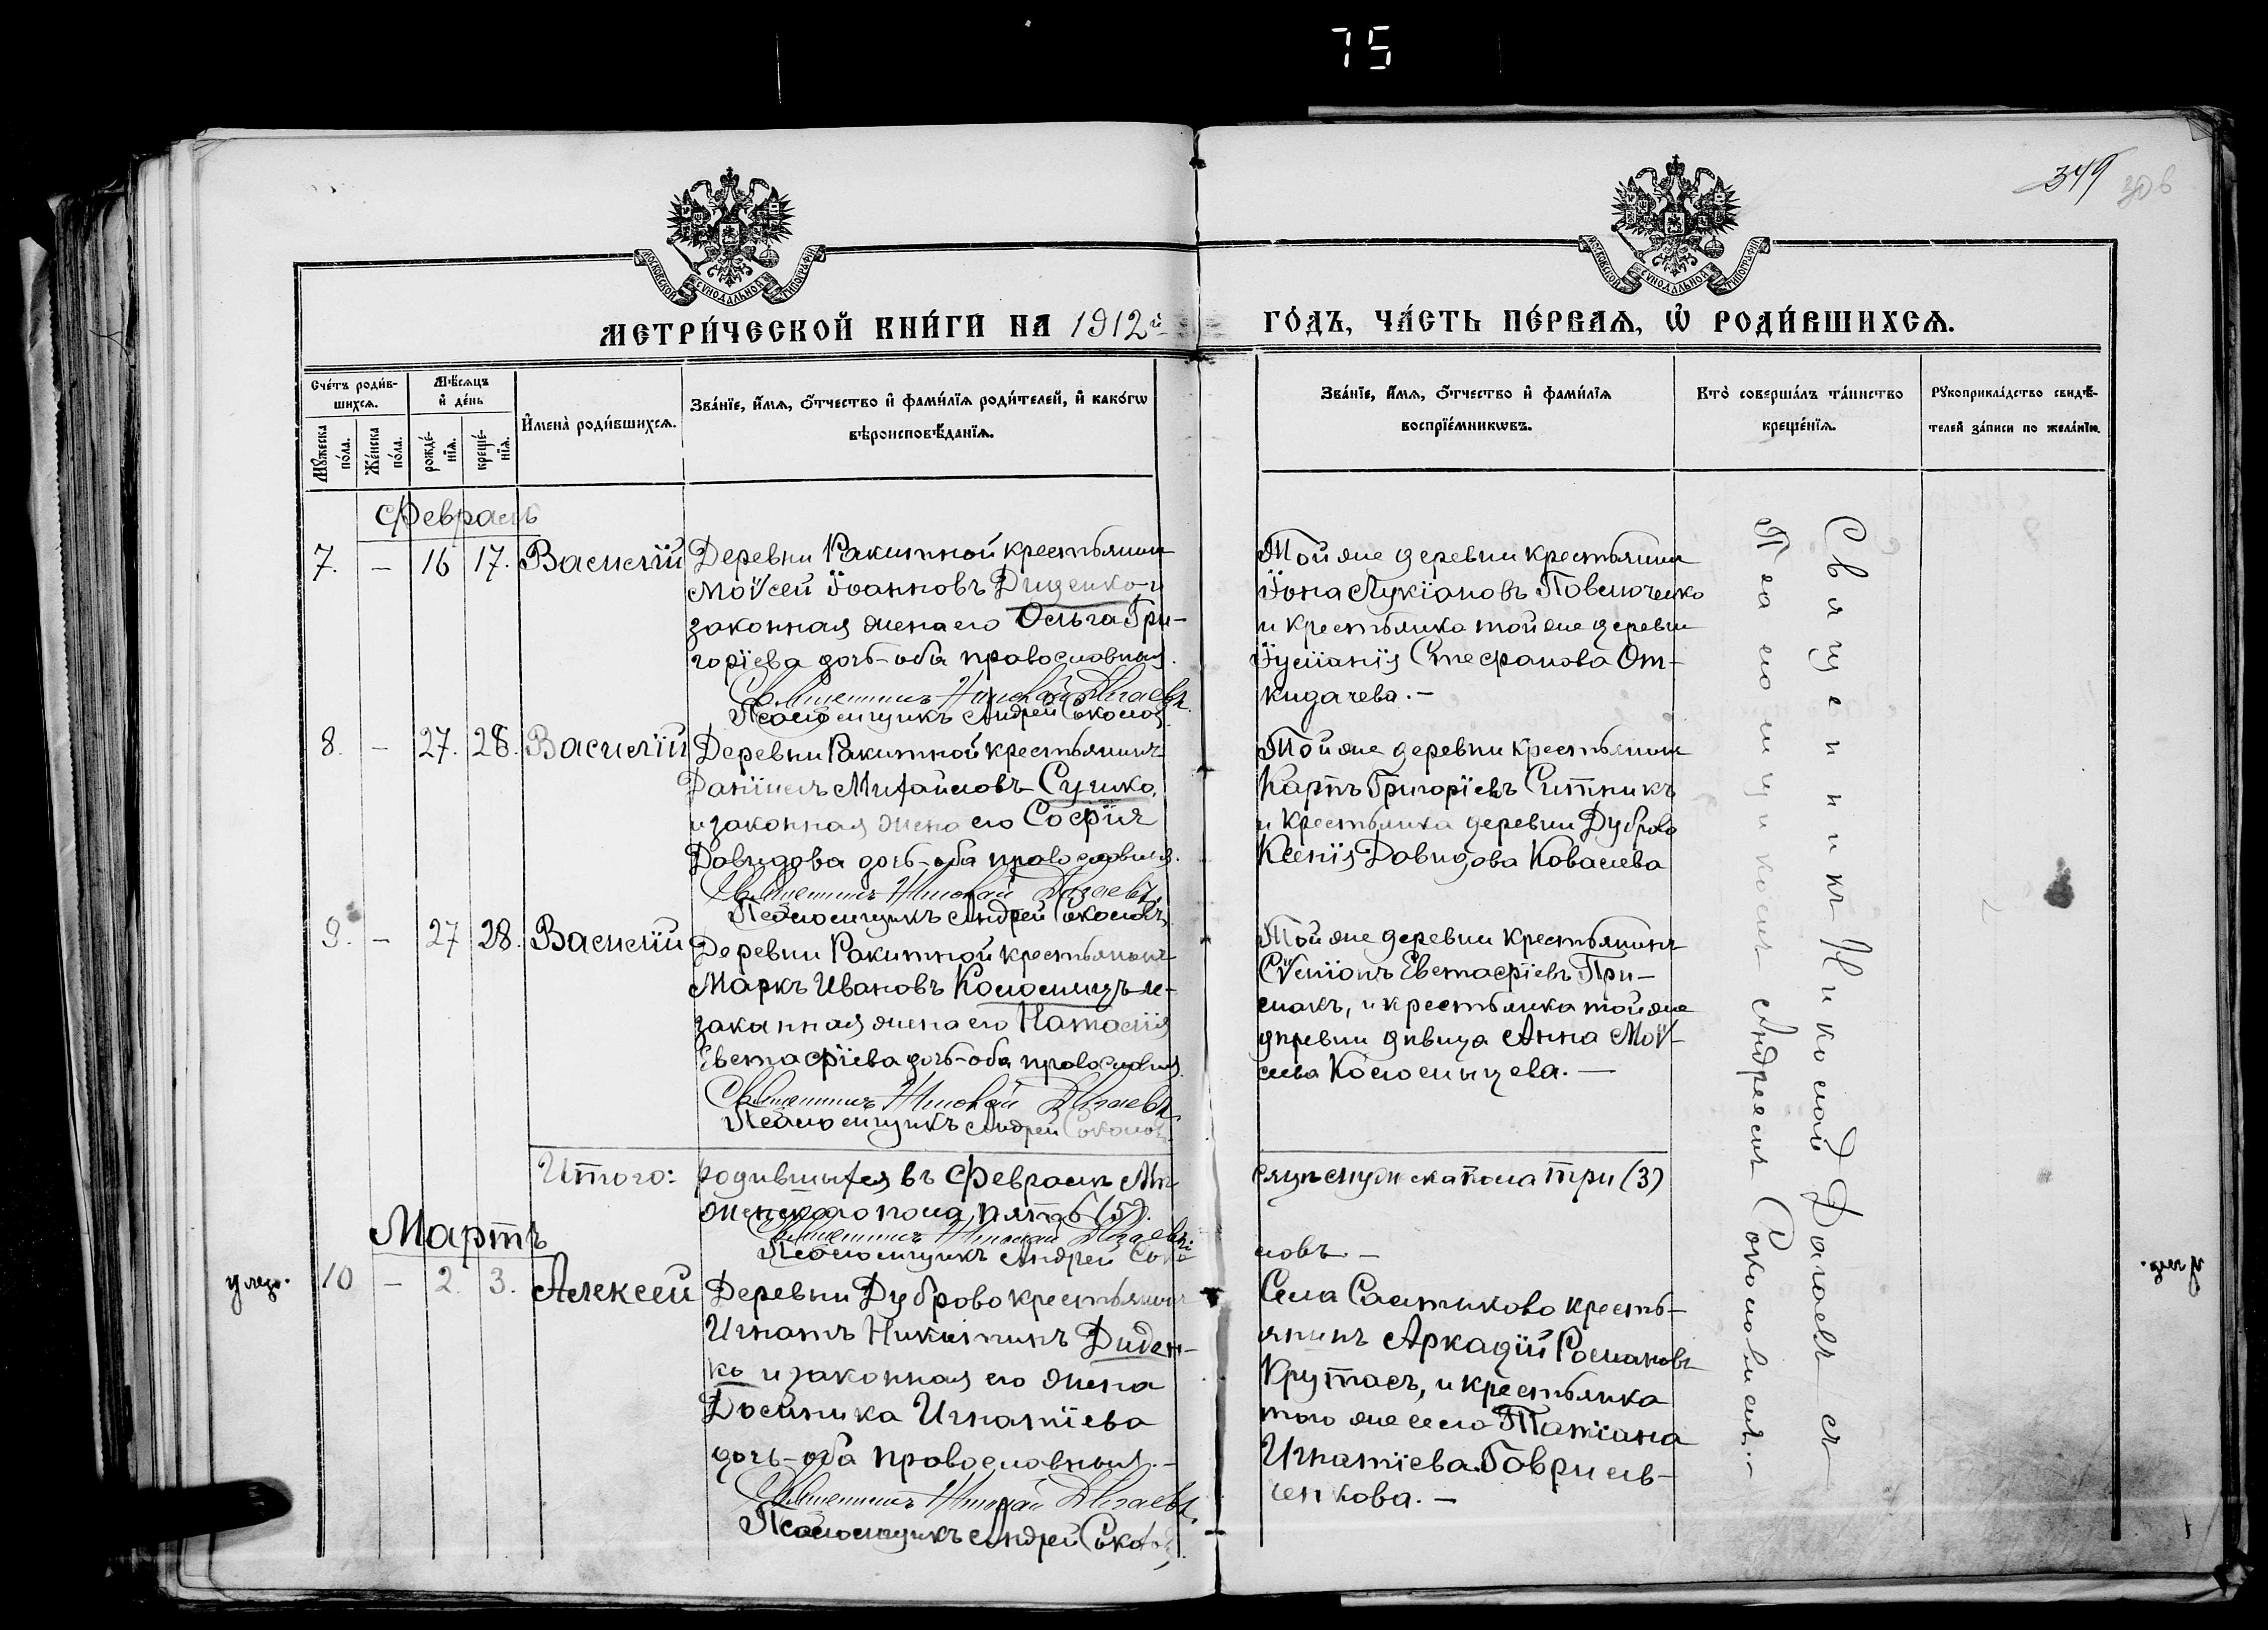 75
349
306
МОСКОВСКОЙ СѴНОДАЛЬНОЙ ТИПОГРАФІИ
МОСКОВСКОЙ СѴНОДАЛЬНОЙ ТИПОГРАФІИ
МЕТРИ́ЧЕСКОЙ КНИ́ГИ НА 1912й
ГО́ДЪ, ЧА́СТЬ ПЕ́РВАѦ, Ѡ РОДИ́ВШИХСѦ.
Сче́тъ роди́в-
шихсѧ.
Мꙋ́жеска
по́ла.
Же́нска
по́ла.
Мѣ́сѧцъ
и҆ де́нь
рожде́-
нїѧ.
креще́-
нїѧ.
И҆мена̀ роди́вшихсѧ.
Зва́нїе, и҆́мѧ, ѻ҆́тчество и҆ фами́лїѧ роди́телей, и҆ како́гѡ
вѣроисповѣ́данїѧ.
Зва́нїе, и҆́мѧ, ѻ҆́тчество и҆ фами́лїѧ
воспрїе́мникѡвъ.
Кто̀ соверша́лъ та́инство
креще́нїѧ.
Рꙋкоприкла́дство свидѣ́-
телей за́писи по жела́нїю.
Февраль
7. – 16 17. Василій
Деревни Ракитной крестьянин
Моѵсей Іоанновъ Диденко и
законная жена его Ольга Гри-
горіева дочь – оба православныя.
Священникъ Николай Дигаевъ.
Псаломщикъ Андрей Соколов
Той же деревни крестьянин
Іона Лукіановъ Павлюченко
и крестьянка той же деревни
Іуліанія Стефанова От-
кидачева. –
8. – 27. 28. Василій
Деревни Ракитной крестьянинъ
Даніилъ Михайловъ Сушко
и законная жена его Софія
Давидова дочь – оба православныя.
Священникъ Николай Дигаевъ.
Псаломщикъ Андрей Соколовъ
Той же деревни крестьянин
Карпъ Григоріевъ Ситникъ
и крестьянка деревни Дуброво
Ксенія Давидова Ковалева
9. – 27 28. Василій
Деревни Ракитной крестьянинъ
Маркъ Ивановъ Коломыецъ и
законная жена его Наталія
Евстафіева дочь – оба православныя.
Священникъ Николай Дигаевъ
Псаломщикъ Андрей Соколовъ
Той же деревни крестьянинъ
Сѵмеонъ Евстафіевъ При-
макъ, и крестьянка той же
деревни дѣвица Анна Моѵ-
сеева Коломыцева. –
Итого: родившихся въ Февралѣ Мѣ-
сяцѣ мужска пола три (3)
женскаго пола пять (5).
Священникъ Николай Дигаевъ
Псаломщикъ Андрей Соко-
ловъ. –
Мартъ
умер. 10 – 2. 3. Алексей
Деревни Дуброво крестьянин
Игнатъ Никитинъ Диден-
ко и законная его жена
Домника Игнатіева
дочь – оба православныя. –
Священникъ Николай Дигаевъ
Псаломщикъ Андрей Соколов
Села Салтыково кресть-
янинъ Аркадій Романовъ
Крутась, и крестьянка
того же села Татіана
Игнатіева Гаврилъ-
ченкова. –
Священникъ Николай Дигаевъ съ
Псаломщикомъ Андреемъ Соколовымъ. –
умер.